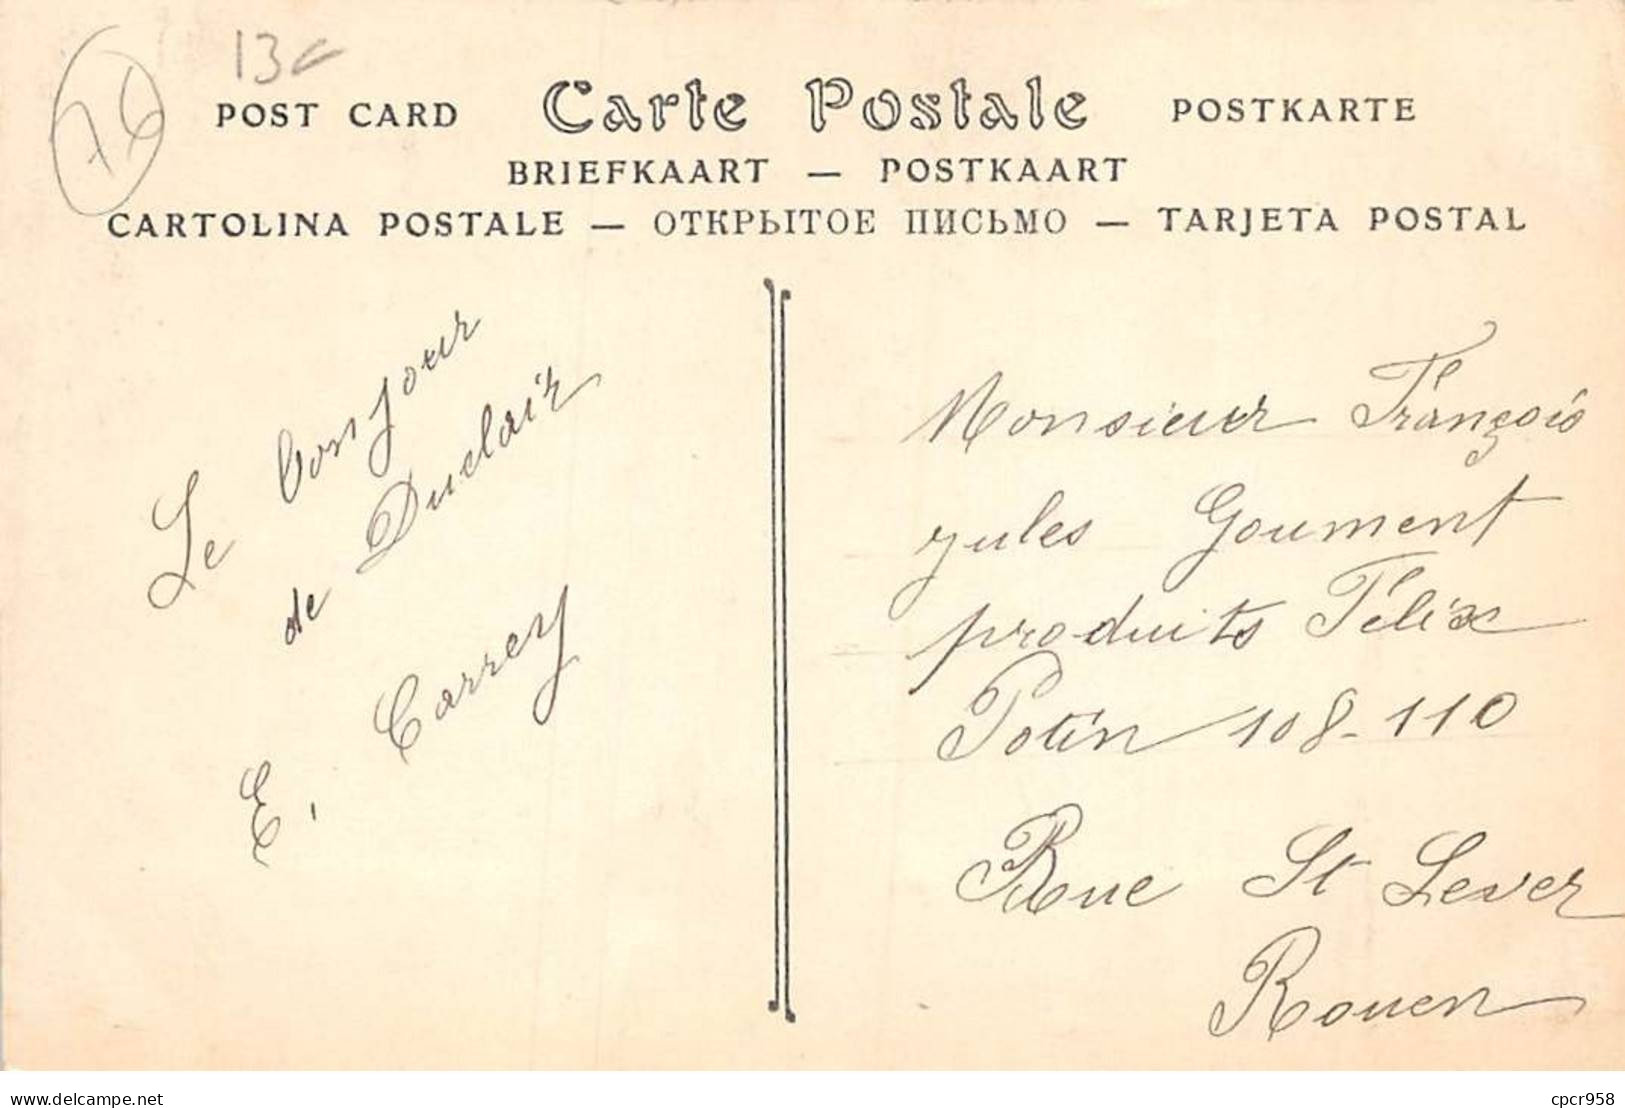 76
13c
POST CARD Carte Postale POSTKARTE
BRIEFKAART — POSTKAART
CARTOLINA POSTALE — ОТКРЫТОЕ ПИСЬМО — TARJETA POSTAL
Le bonjour
de Duclair
E. Carrey
Monsieur François
jules Goument
produits Félix
Potin 108-110
Rue St Sever
Rouen
www.delcampe.net
cpcr958